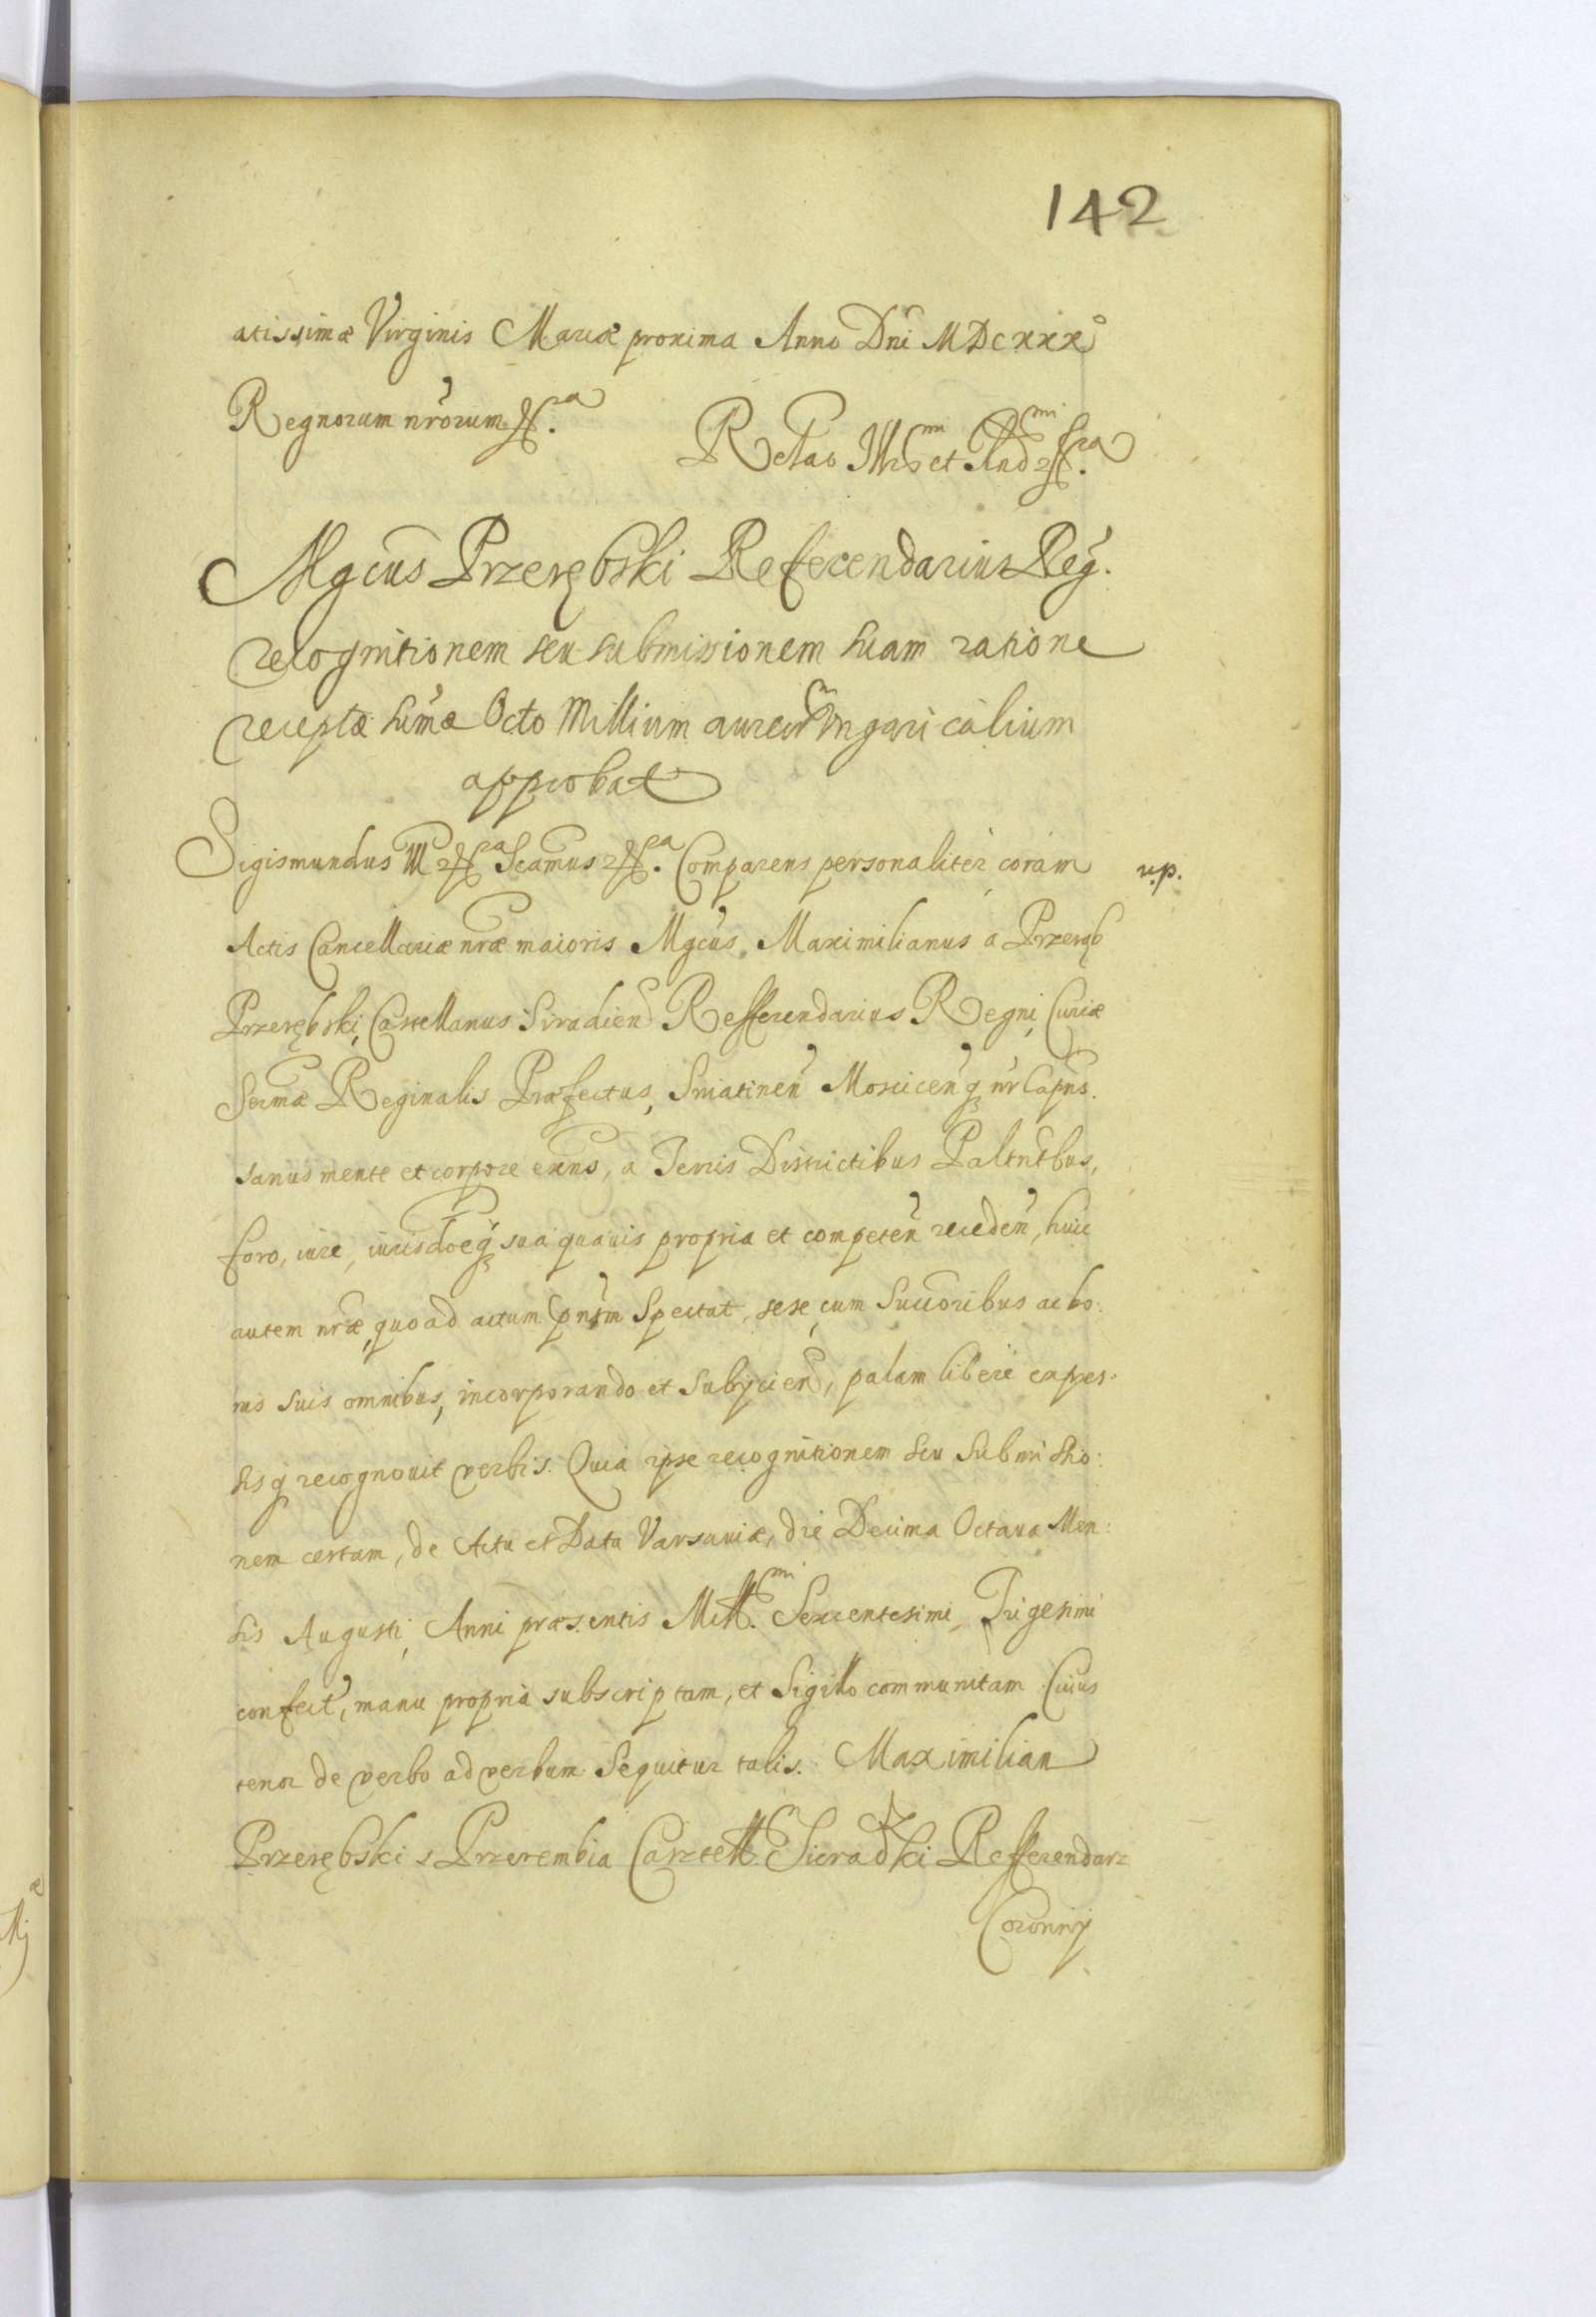 142
atissimæ Virginis Mariæ proxima Anno Dni MDCXXX°
Regnorum nrorum etc.ra
Relao Illmi et Rndmi etc.ra
Mgcus Przerębski Referendarius Reg.
recognitionem seu submissionem suam ratione
receptæ sumæ Octo Millium aureorum Vngaricalium
approbat
Sigismundus III etc.ra Scamus etc.ra Comparens personaliter coram
v.p.
Actis Cancellariæ nræ maioris Mgcus. Maximilianus a Przeręb
Przerębski, Castellanus Siradien Refferendarius Regni, Curiæ
Sermæ Reginalis Præfectus, Sniatinen Moscicenq nr Capns.
sanus mente et corpore exns, a Terris Districtibus Paltntbus,
foro, iure, iurisdoeq sua quauis propria et competen receden, huic
autem nræ, quoad actum pntm Spectat, sese, cum Succoribus ac bo:
nis suis omnibus, incorporando et Subijcien, palam libere expres:
sisq recognouit verbis. Quia ipse recognitionem seu Submissio:
nem certam, de Actu et Data Varsauiæ, die Decima Octaua Men:
sis Augusti, Anni præsentis Mill.mi Sexcentesimi, Trigesimi
confect, manu propria subscriptam, et Sigillo communitam Cuius
tenor de verbo ad verbum Sequitur talis. Maximilian
Przerębski s Przerembia Casztell. Sieradzki Refferendarz
Coronny